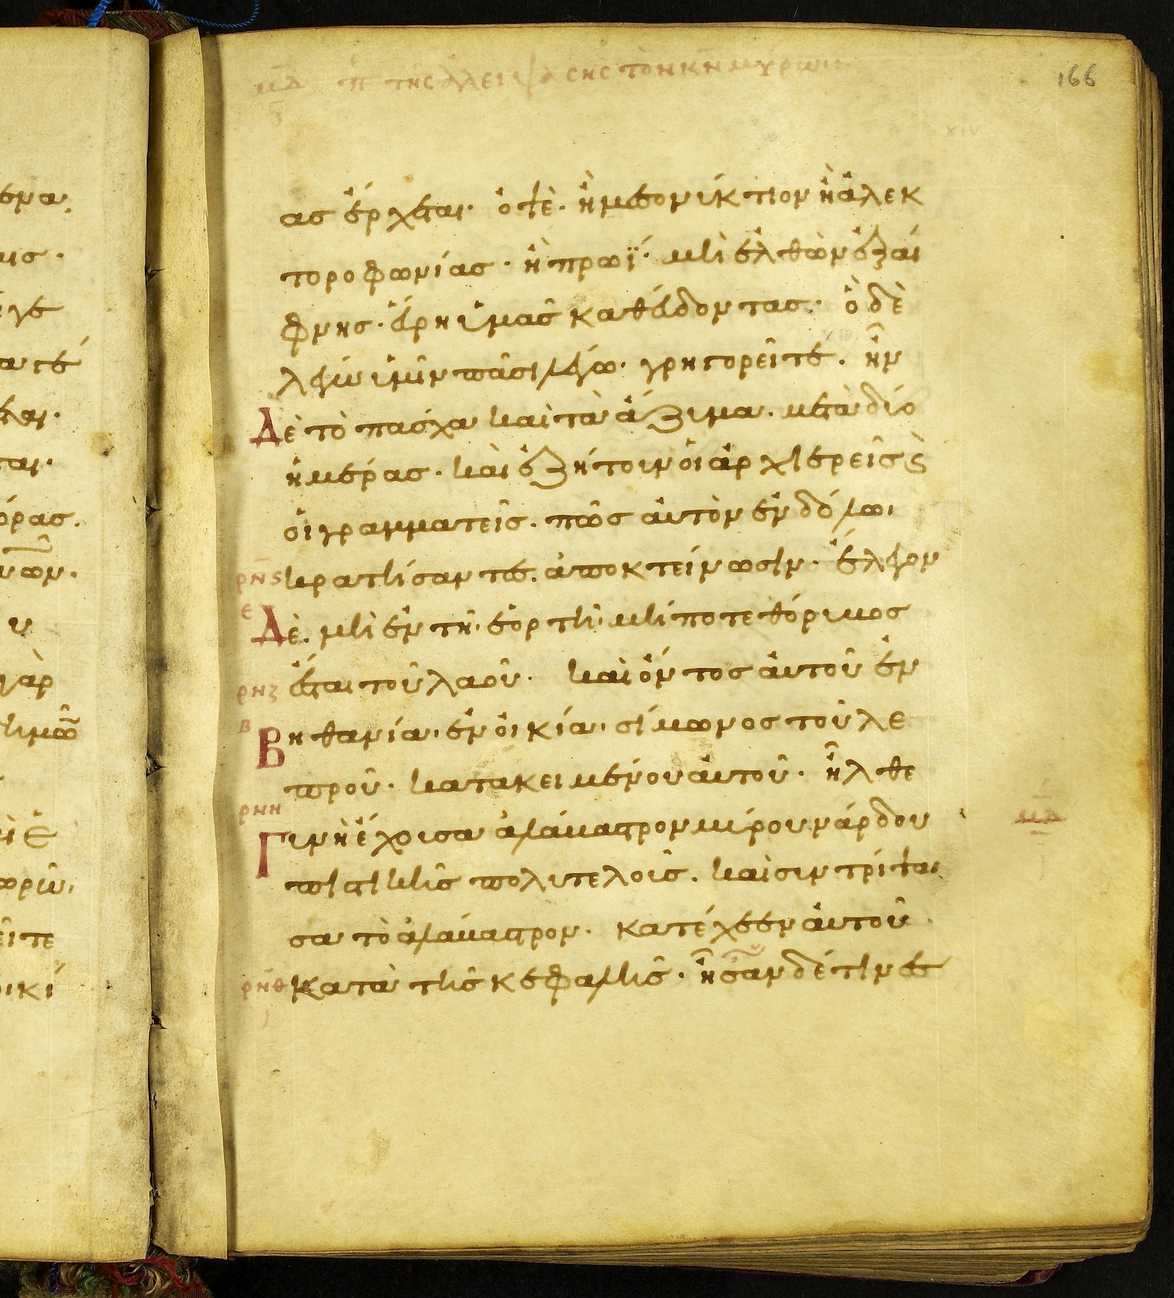 μδ π της αλειψάσης τὸν κν μύρωι
166
XIV
ας ἔρχεται· ὀψὲ· ἢ μεσονύκτιον ἢ ἀλεκ
τοροφωνίας· ἢ πρωΐ· μὴ ἐλθὼν ἐξαί
φνης· εὕρη ὑμᾶς καθεύδοντας· ὃ δὲ
λέγω ὑμῖν πᾶσι λέγω· γρηγορεῖτε. ἦν
Δὲ τὸ πασχα καὶ τὰ ἄζυμα. μετὰ δύο
ἡμέρας· καὶ ἐζήτουν οἱ ἀρχιερεῖς ϗ
οἱ γραμματεῖς. πῶς αὐτὸν ἐν δόλω
ρνς κρατήσαντες. ἀποκτείνωσιν· ἔλεγον
ε Δὲ. μὴ ἐν τῆ ἑορτῆ· μήποτε θόρυβος
ρνζ ἔσται τοῦ λαοῦ· καὶ ὄντος αὐτοῦ ἐν
β Βηθανία· ἐν οἰκία· σίμωνος τοῦ λε
προῦ· κατακειμένου αὐτοῦ· ἦλθε
ρνη
Γυνὴ ἔχουσα ἀλάβαστρον μύρου νάρδου
μδ
πιστικῆς πολυτελοῦς. καὶ συντρίψα
σα τὸ ἀλάβαστρον· κατέχεεν αὐτοῦ
ρνθ κατὰ τῆς κεφαλῆς· ἦσαν δέ τινες